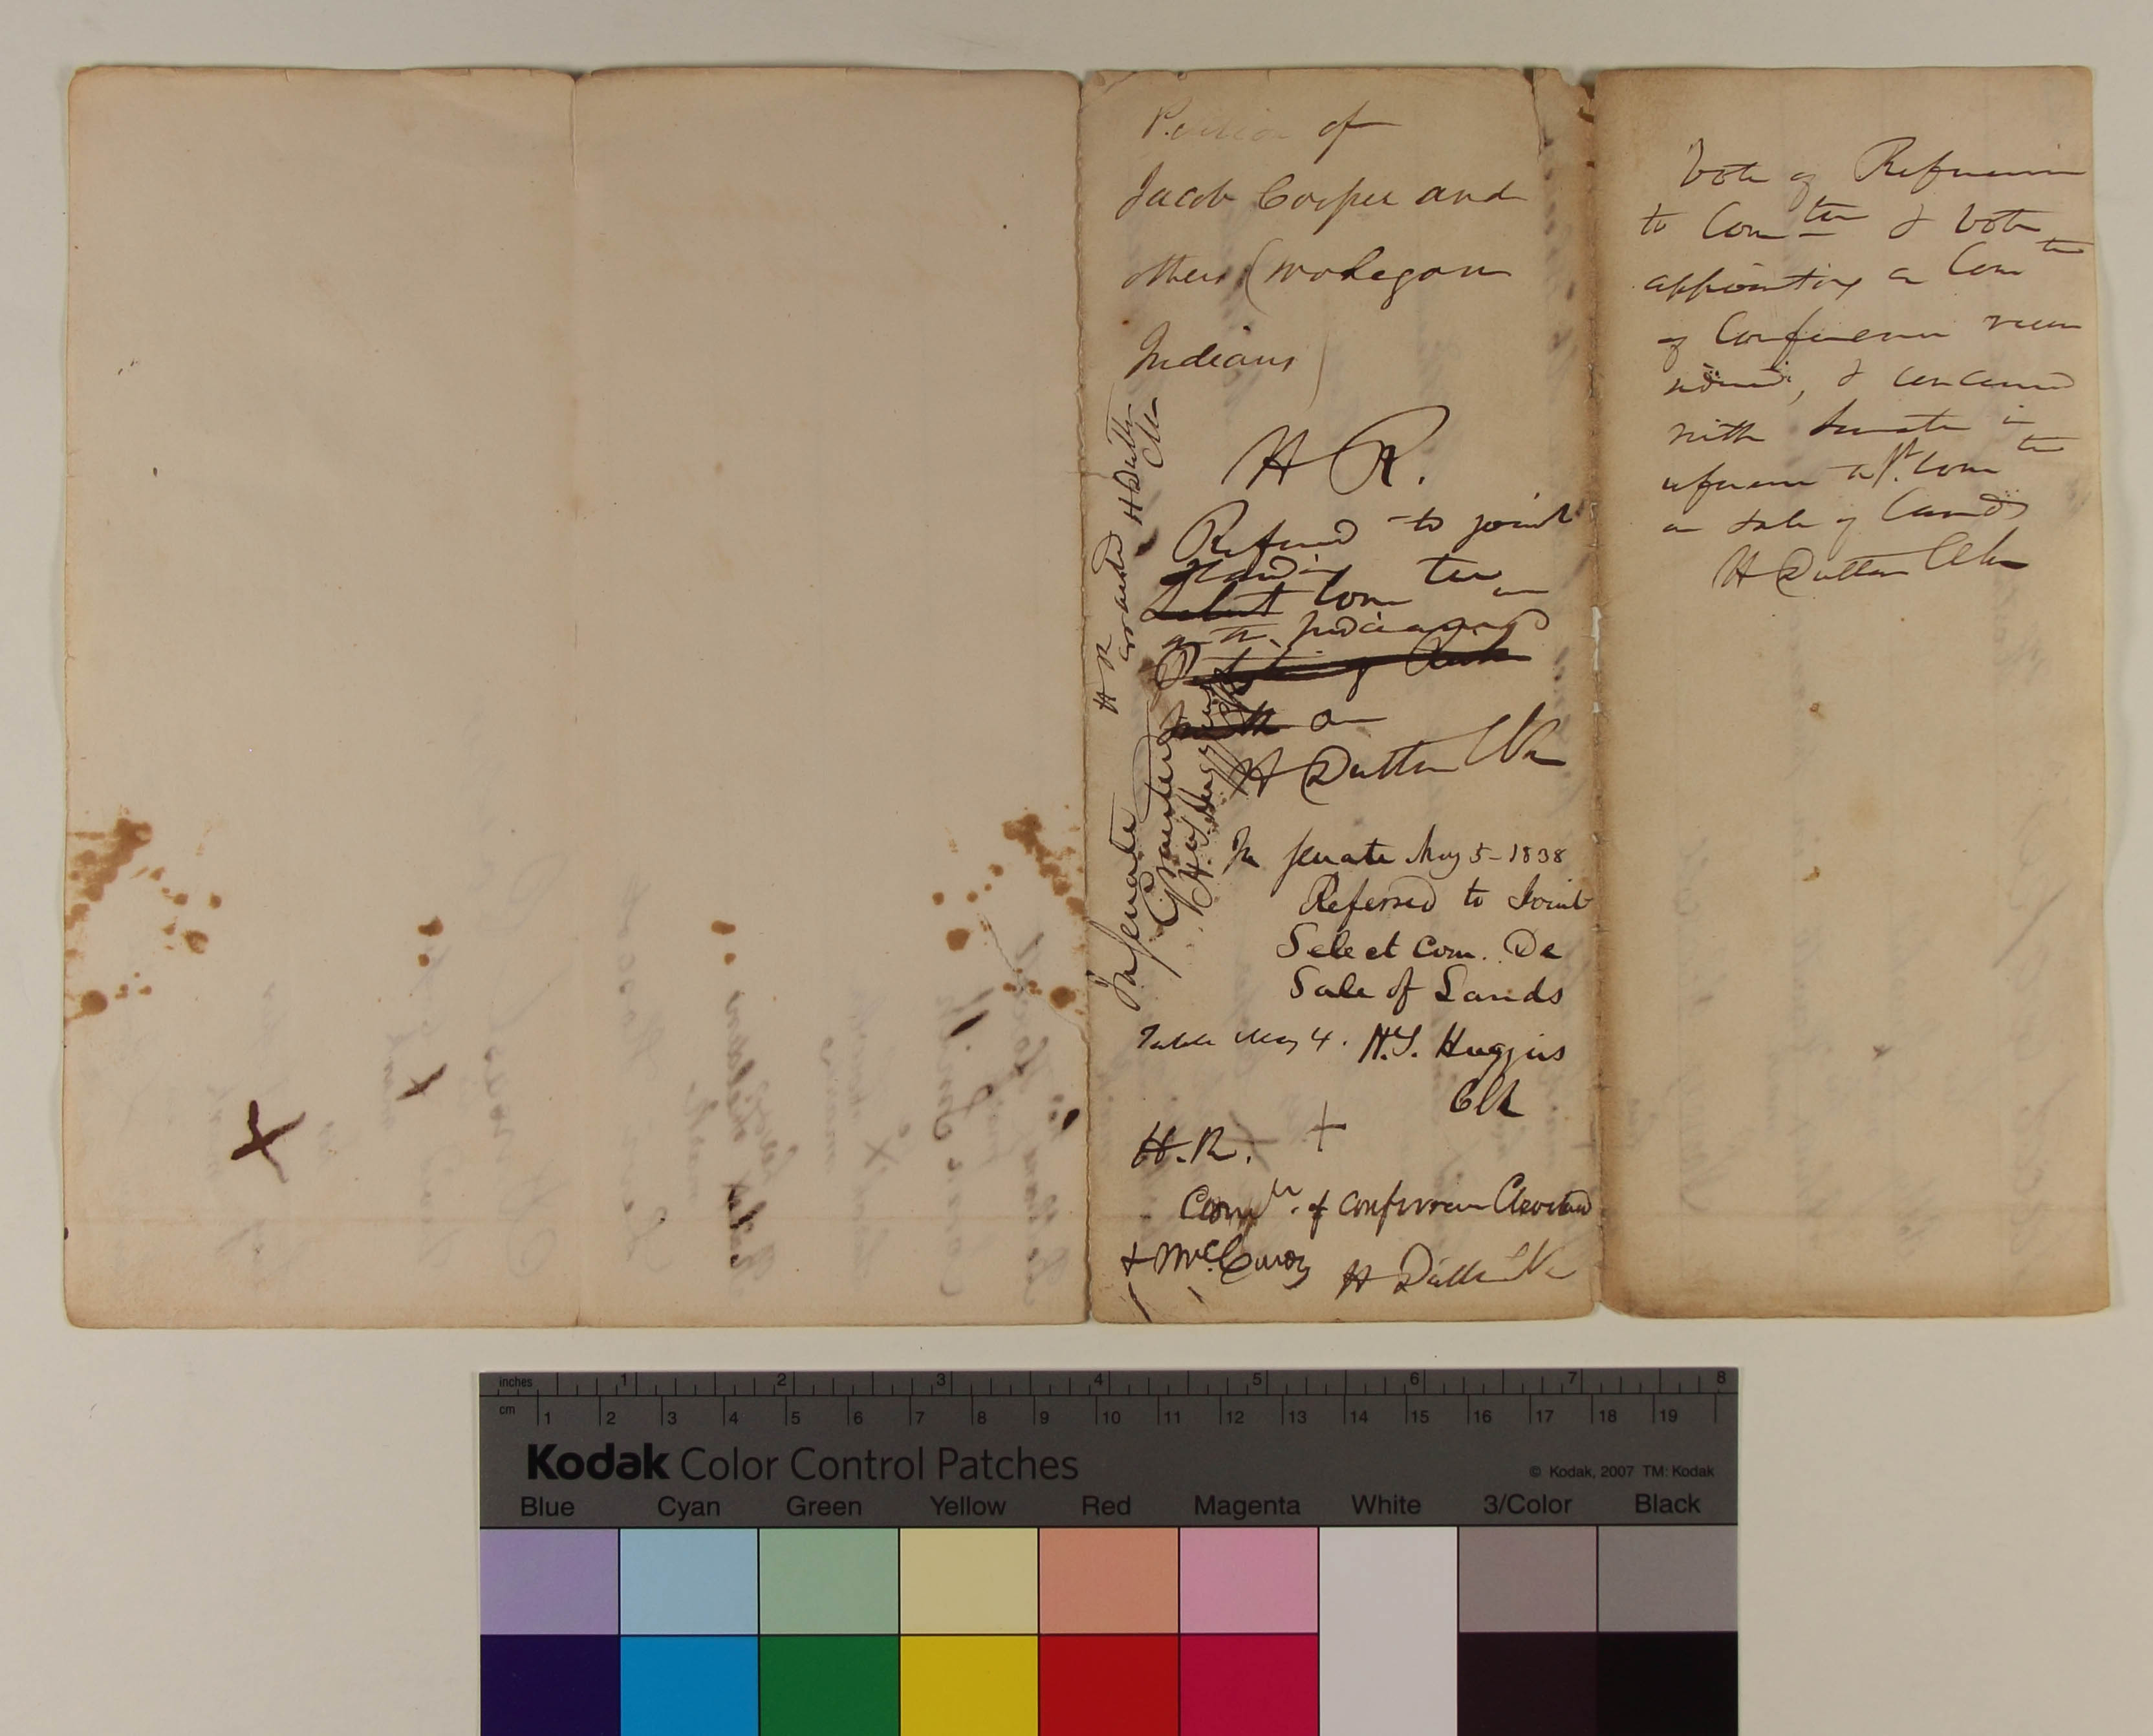 Petition of
Jacob Cooper and
others (Mohegan
Indians)
H R.
Referred to joint
Standing
Select Com tee on
on the Judiciary
on
H Dutton Clk
In Senate May 5 - 1838
Referred to Joint
Select Com. De
Sale of Lands
Table May 4. H.S. Huggins
Clk
H.R. +
Comtt. of conference Cleveland
& McCurdy H Dutton Clk
H R
Granted H Dutton
Clk
In Senate
Granted
H. S. Huggins
Vote of Reference
to Comtee & vote
appointing a Comtee
of Conference recon
sidered, & concurred
with Senate in
reference to Jt. Comtee
on sale of Lands
H Dutton Clk
inches 1 2 3 4 5 6 7 8
cm 1 2 3 4 5 6 7 8 9 10 11 12 13 14 15 16 17 18 19
Kodak Color Control Patches
© Kodak, 2007 TM: Kodak
Blue Cyan Green Yellow Red Magenta White 3/Color Black